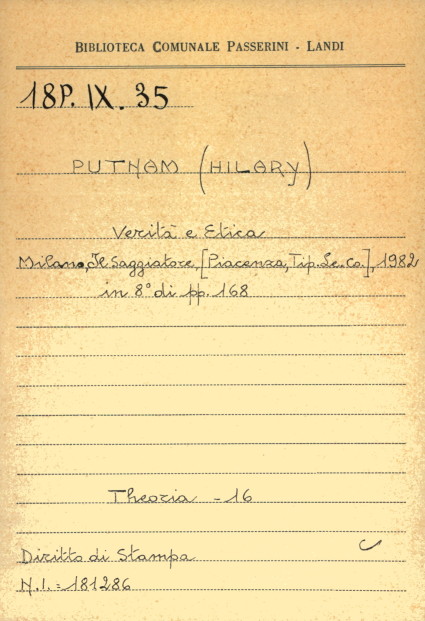 BIBLIOTECA COMUNALE PASSERINI - LANDI
18P. IX. 35
PUTNAM (HILARY)
Verità e Etica
Milano, Il Saggiatore, [Piacenza, Tip. Le. Co.], 1982
in 8° di pp. 168
Theoria - 16
Diritto di Stampa
N.I. = 181286